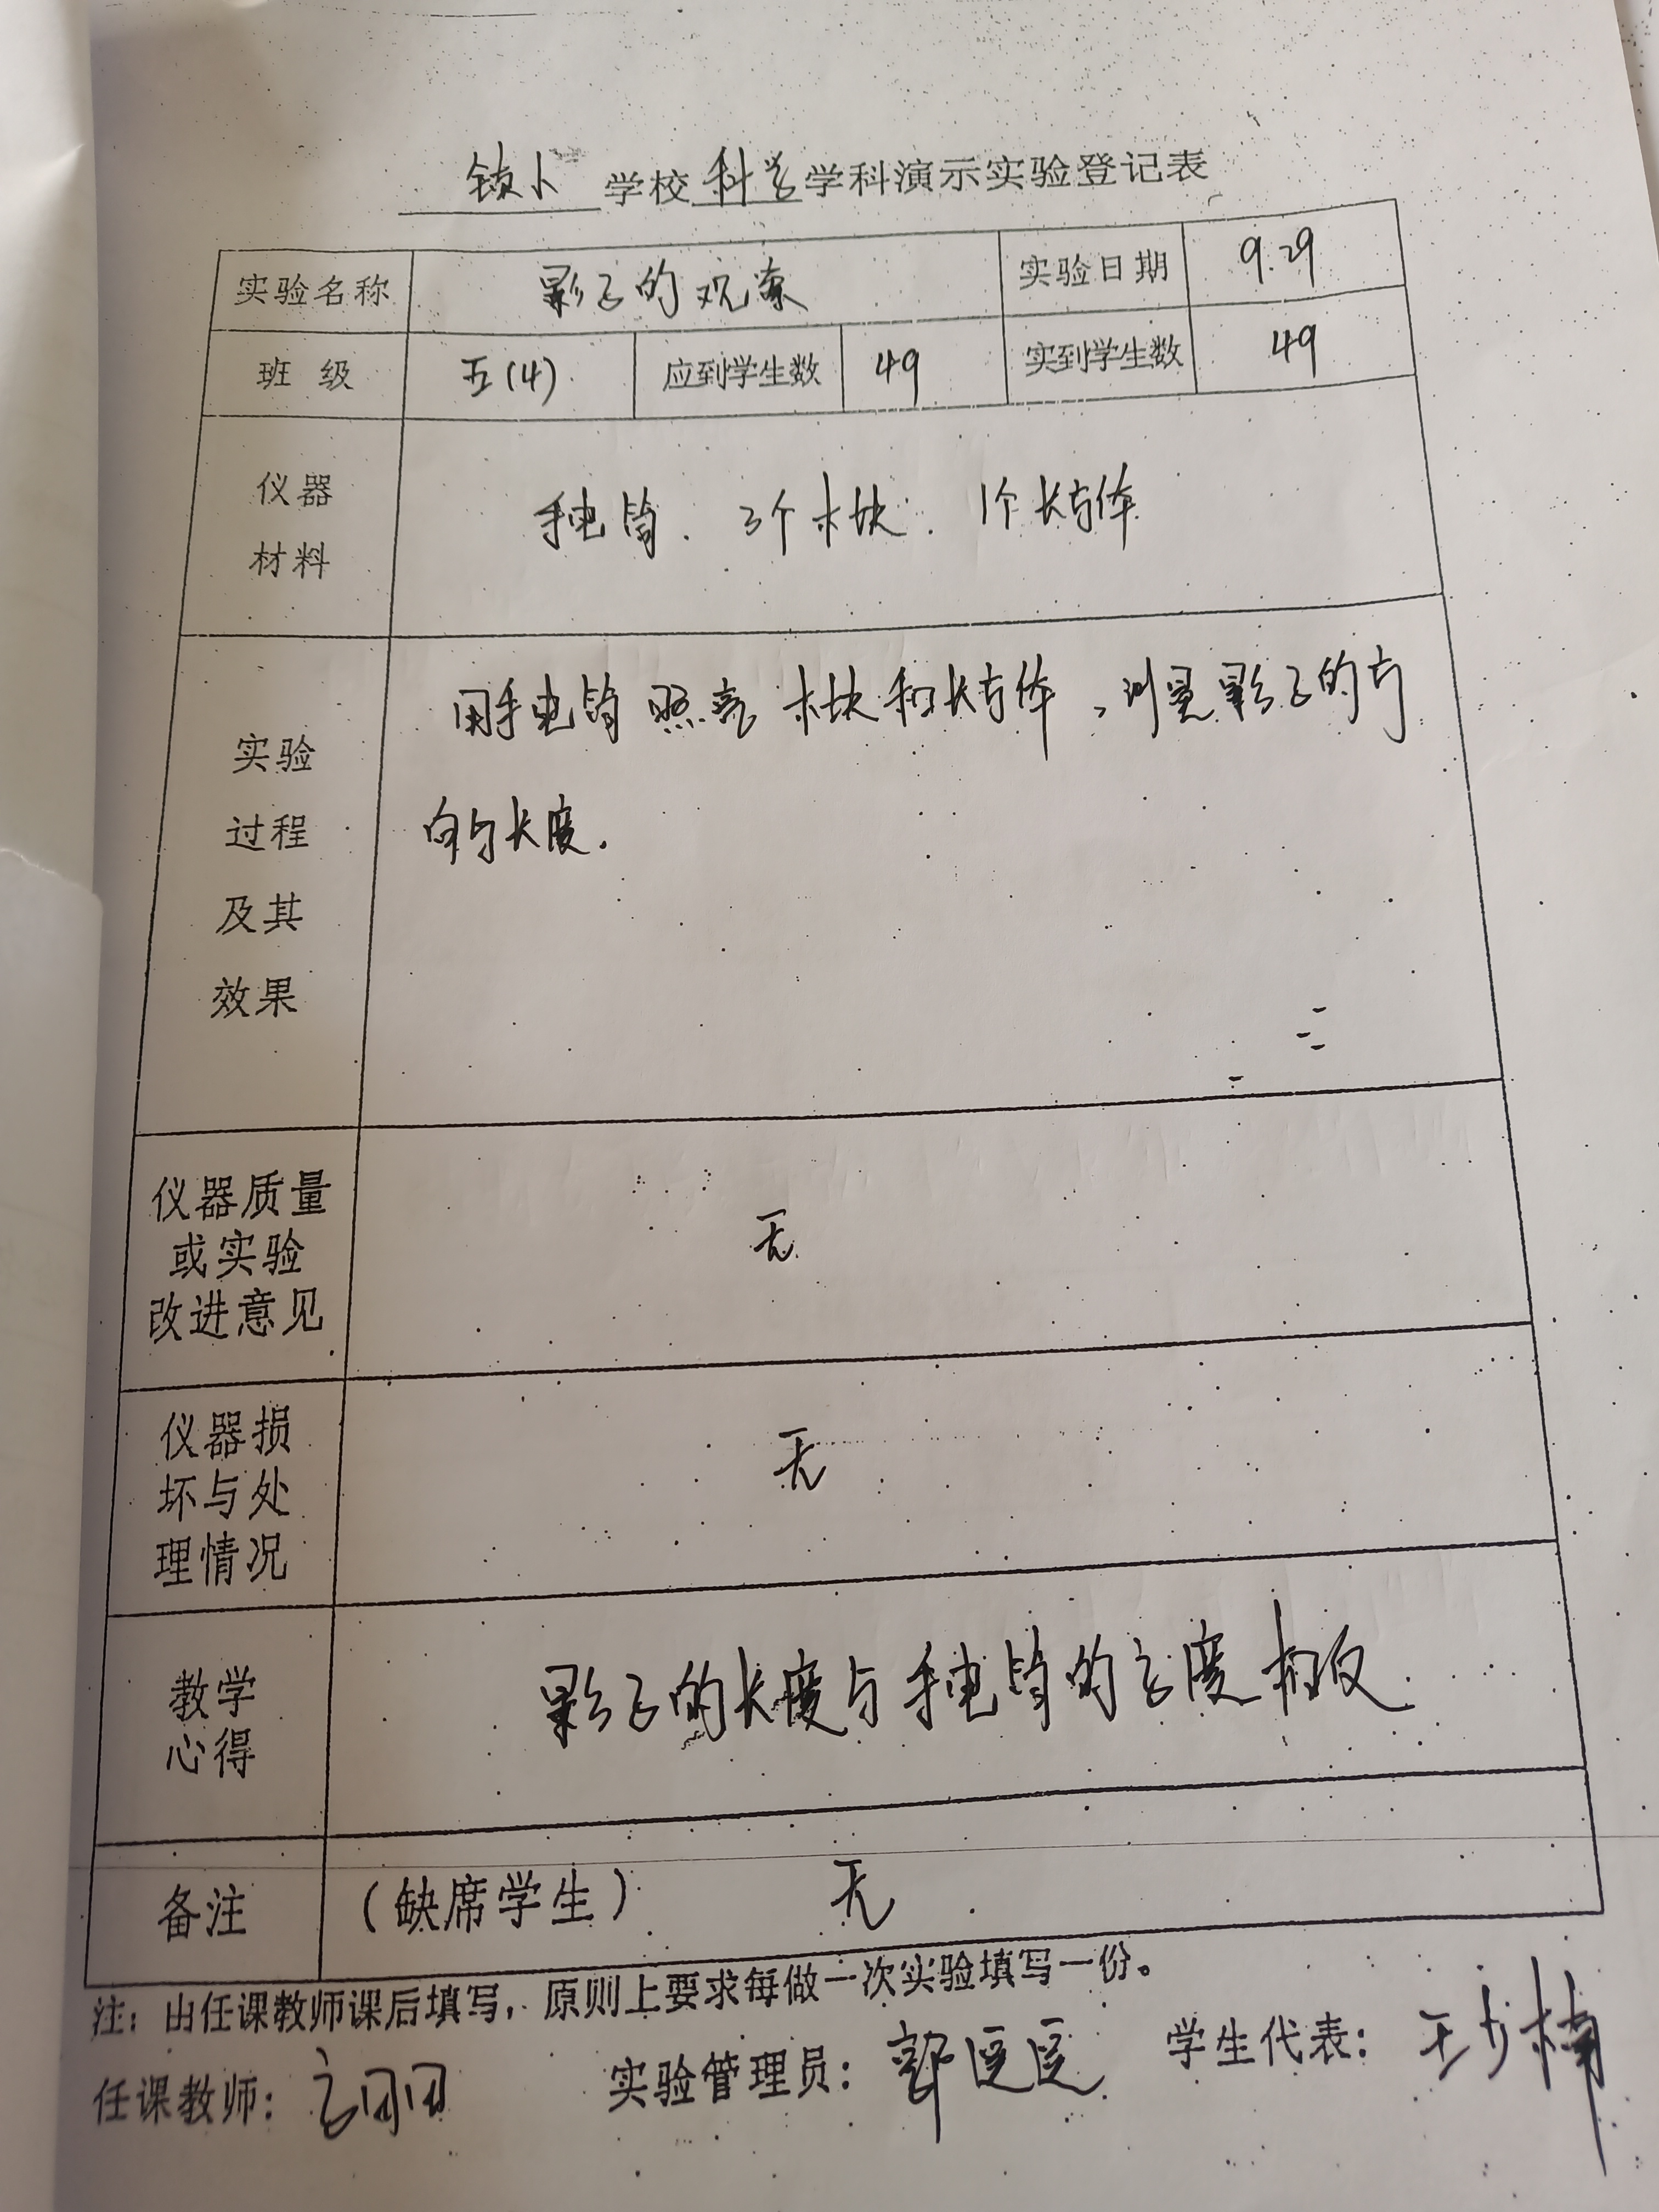 学校科学学科演示实验登记表
实验名称 影子的观察 实验日期 9.29
班 级 五(4) 应到学生数 49 实到学生数 49
仪器
材料
手电筒、3个木块、1个长方体
实验
过程
及其
效果
用手电筒照亮木块和长方体,测量影子的方
向与长度.
仪器质量
或实验
改进意见
无
仪器损
坏与处
理情况
无
教学
心得
影子的长度与手电筒的高度相反.
备注 (缺席学生) 无
注:由任课教师课后填写,原则上要求每做一次实验填写一份。
任课教师: 实验管理员: 学生代表: